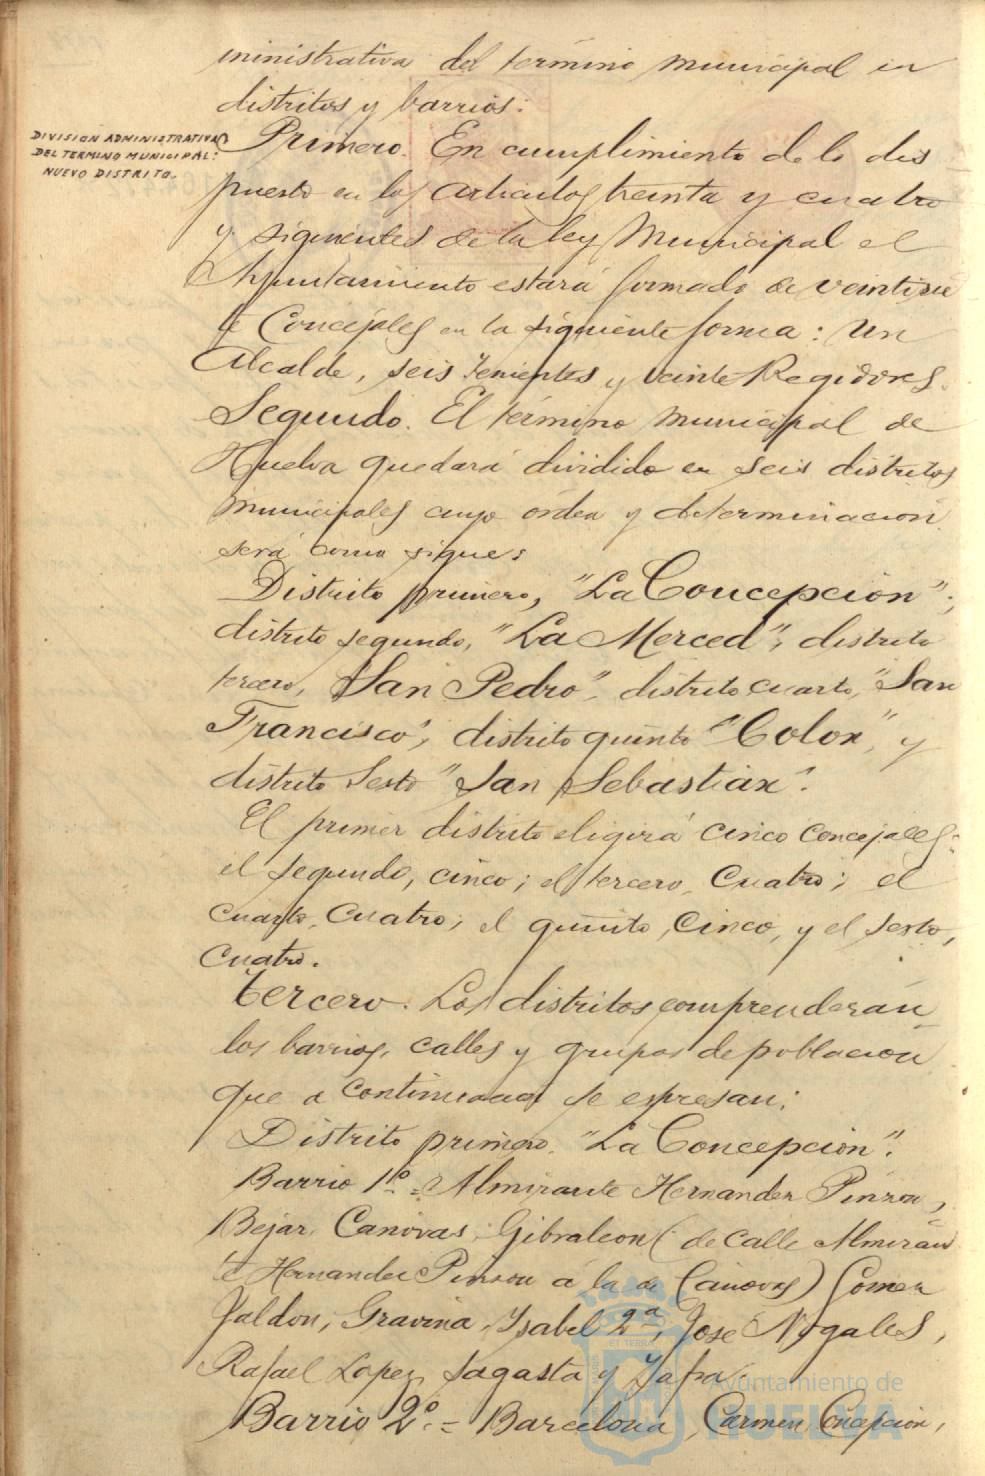 ministrativa del término municipal en
distritos y barrios:
DIVISION ADMINISTRATIVA
DEL TERMINO MUNICIPAL:
NUEVO DISTRITO.
Primero. En cumplimiento de lo dis
puesto en los articulos treinta y cuatro
y siguientes de la ley Municipal el
Ayuntamiento estará formado de veintisie
te Concejales en la siguiente forma: Un
Alcalde, seis Tenientes y veinte Regidores.
Segundo. El término municipal de
Huelva quedará dividido en seis distritos
municipales cuyo órden y determinación
será como sigue:
Distrito primero, "La Concepción";
distrito segundo, "La Merced"; distrito
tercero, "San Pedro", distrito cuarto, "San
Francisco"; distrito quinto "Colon", y
distrito Sexto "San Sebastián".
El primer distrito eligirá cinco Concejales;
el segundo, cinco; el tercero, Cuatro; el
cuarto, Cuatro; el quinto, Cinco, y el sexto,
Cuatro.
Tercero. Los distritos comprenderán
los barrios, calles y grupos de población
que a continuacion se expresan:
Distrito primero. "La Concepción".
Barrio 1º = Almirante Hernandez Pinzon,
Bejar, Canovas, Gibraleon (de calle Almiran
te Hernandez Pinzon á la de Canovas) Gomez
Jaldon, Gravina, Ysabel 2ª, Jose Nogales,
Rafael Lopez, Sagasta y Zafra.
Barrio 2º. = Barcelona, Carmen, Concepcion,
Ayuntamiento de
HUELVA